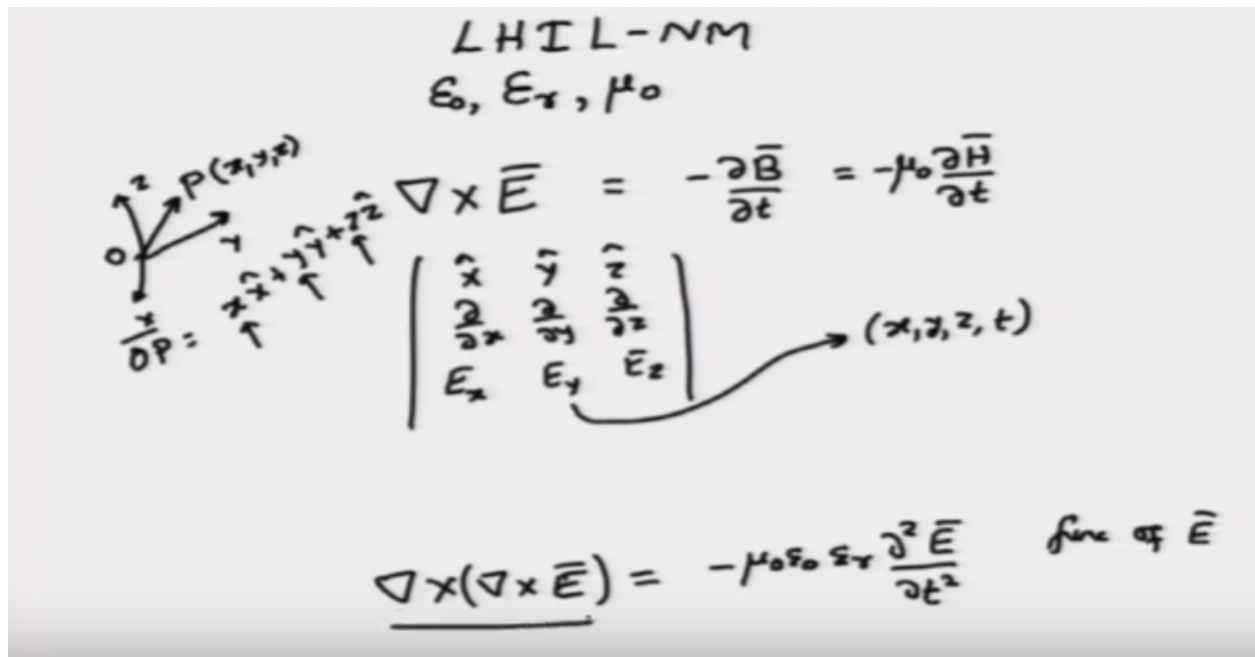 LHIL-NM
ε₀, εᵣ, μ₀
z
P(x,y,z)
O
y
x
OP = xx̂ + yŷ + zẑ
∇ × E̅ = -∂B̅/∂t = -μ₀ ∂H̅/∂t
x̂ ŷ ẑ
∂/∂x ∂/∂y ∂/∂z
Eₓ Eᵧ E_z
(x, y, z, t)
∇×(∇×E̅) = -μ₀ε₀εᵣ ∂²E̅/∂t² func of E̅